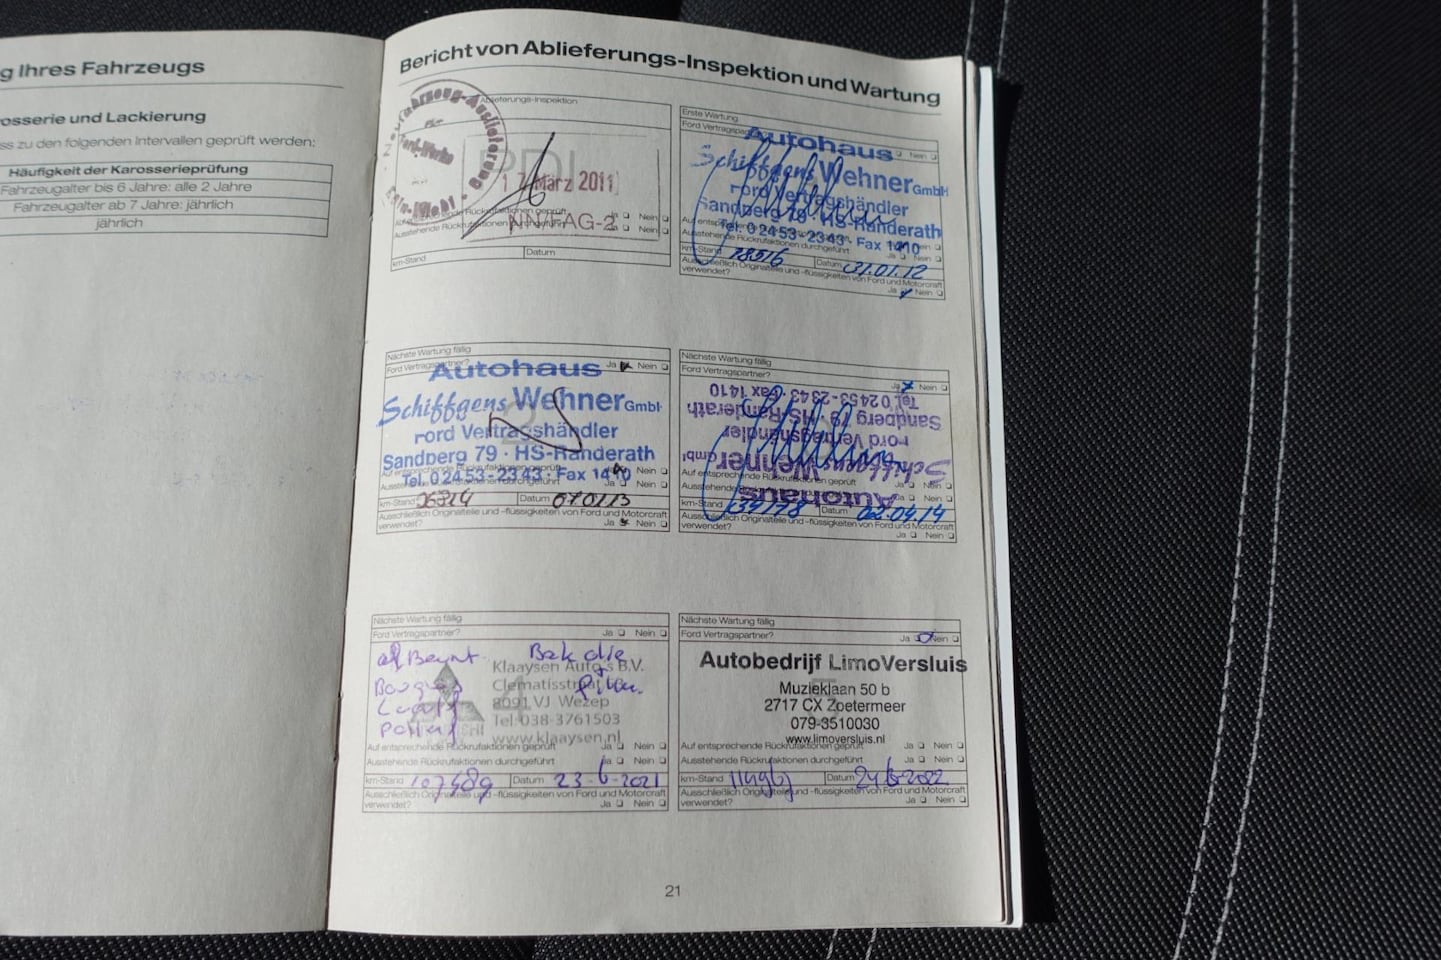 g Ihres Fahrzeugs
osserie und Lackierung
ss zu den folgenden Intervallen geprüft werden:
Häufigkeit der Karosserieprüfung
Fahrzeugalter bis 6 Jahre: alle 2 Jahre
Fahrzeugalter ab 7 Jahre: jährlich
jährlich
Bericht von Ablieferungs-Inspektion und Wartung
Ablieferungs-Inspektion
PDI
17. März 2011
NN/FAG-2
Ausstehende Rückrufaktionen durchgeführt Ja Nein
km-Stand Datum
Erste Wartung
Ford Vertragspartner? Nein
Autohaus
Schiffgens Wehner GmbH
Ford Vertragshändler
Sandberg 79 · HS-Randerath
Tel. 0 24 53 - 23 43 · Fax 14 10
Ausstehende Rückrufaktionen durchgeführt Ja Nein
km-Stand 18516 Datum 31.01.12
Ausschließlich Originalteile und -flüssigkeiten von Ford und Motorcraft
verwendet? Ja Nein
Nächste Wartung fällig
Ford Vertragspartner? Ja Nein
Autohaus
Schiffgens Wehner GmbH
Ford Vertragshändler
Sandberg 79 · HS-Randerath
Tel. 0 24 53 - 23 43 · Fax 14 10
km-Stand Datum 07.01.13
Ausschließlich Originalteile und -flüssigkeiten von Ford und Motorcraft
verwendet? Ja Nein
Nächste Wartung fällig
Ford Vertragspartner? Ja Nein
Tel. 0 24 53 - 23 43 · Fax 14 10
Sandberg 79 · HS-Randerath
Ford Vertragshändler
Schiffgens Wehner GmbH
Autohaus
km-Stand 39778 Datum 02.04.14
Ausschließlich Originalteile und -flüssigkeiten von Ford und Motorcraft
verwendet? Ja Nein
Nächste Wartung fällig
Ford Vertragspartner? Ja Nein
4
Klaaysen Auto's B.V.
Clematisstraat
8091 VJ Wezep
Tel: 038-3761503
www.klaaysen.nl
Auf entsprechende Rückrufaktionen geprüft Ja Nein
Ausstehende Rückrufaktionen durchgeführt Ja Nein
km-Stand 107489 Datum 23-6-2021
Ausschließlich Originalteile und -flüssigkeiten von Ford und Motorcraft
verwendet? Ja Nein
Nächste Wartung fällig
Ford Vertragspartner? Ja Nein
5
Autobedrijf LimoVersluis
Muzieklaan 50 b
2717 CX Zoetermeer
079-3510030
www.limoversluis.nl
Auf entsprechende Rückrufaktionen geprüft Ja Nein
Ausstehende Rückrufaktionen durchgeführt Ja Nein
km-Stand Datum 24-6-2022
Ausschließlich Originalteile und -flüssigkeiten von Ford und Motorcraft
verwendet? Ja Nein
21